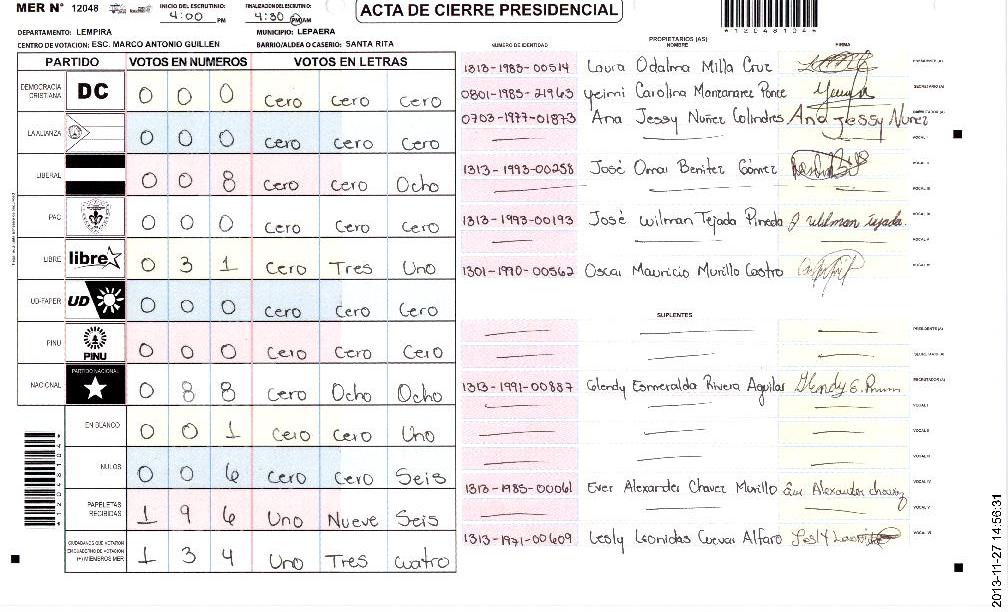 MER N° 12048
INICIO DEL ESCRUTINIO: 4:00 PM
FINALIZACION DEL ESCRUTINIO: 4:30 PM AM
ACTA DE CIERRE PRESIDENCIAL
*12048104*
DEPARTAMENTO: LEMPIRA
MUNICIPIO: LEPAERA
CENTRO DE VOTACION: ESC. MARCO ANTONIO GUILLEN
BARRIO/ALDEA O CASERIO: SANTA RITA
PARTIDO VOTOS EN NUMEROS VOTOS EN LETRAS
DEMOCRACIA CRISTIANA DC 0 0 0 Cero Cero Cero
LA ALIANZA 0 0 0 Cero Cero Cero
LIBERAL 0 0 8 Cero Cero Ocho
PAC 0 0 0 Cero Cero Cero
LIBRE libre 0 3 1 Cero Tres Uno
UD-FAPER UD 0 0 0 Cero Cero Cero
PINU PINU 0 0 0 Cero Cero Cero
NACIONAL PARTIDO NACIONAL 0 8 8 Cero Ocho Ocho
EN BLANCO 0 0 1 Cero Cero Uno
NULOS 0 0 6 Cero Cero Seis
PAPELETAS RECIBIDAS 1 9 6 Uno Nueve Seis
CIUDADANOS QUE VOTARON EN CUADERNO DE VOTACION (+) MIEMBROS MER 1 3 4 Uno Tres Cuatro
*12048104*
PROPIETARIOS (AS)
NUMERO DE IDENTIDAD NOMBRE FIRMA
1313-1983-00514 Laura Odalma Milla Cruz PRESIDENTE (A)
0801-1985-21963 Yeimi Carolina Manzanarez Ponce SECRETARIO (A)
0703-1977-01873 Ana Jessy Nuñez Colindres Ana Jessy Nuñez ESCRUTADOR (A)
VOCAL I
1313-1993-00258 José Omar Benitez Gómez VOCAL II
VOCAL III
1313-1993-00193 José Wilman Tejada Pineda J Wilman Tejada. VOCAL IV
VOCAL V
1301-1970-00562 Oscar Mauricio Murillo Castro VOCAL VI
SUPLENTES
PRESIDENTE (A)
SECRETARIO (A)
1313-1991-00887 Glendy Esmeralda Rivera Aguilar Glendy E. ESCRUTADOR (A)
VOCAL I
VOCAL II
VOCAL III
1313-1985-00061 Ever Alexander Chavez Murillo VOCAL IV
VOCAL V
1313-1971-00609 Lesly Leonidas Cuevas Alfaro VOCAL VI
2013-11-27 14:56:31